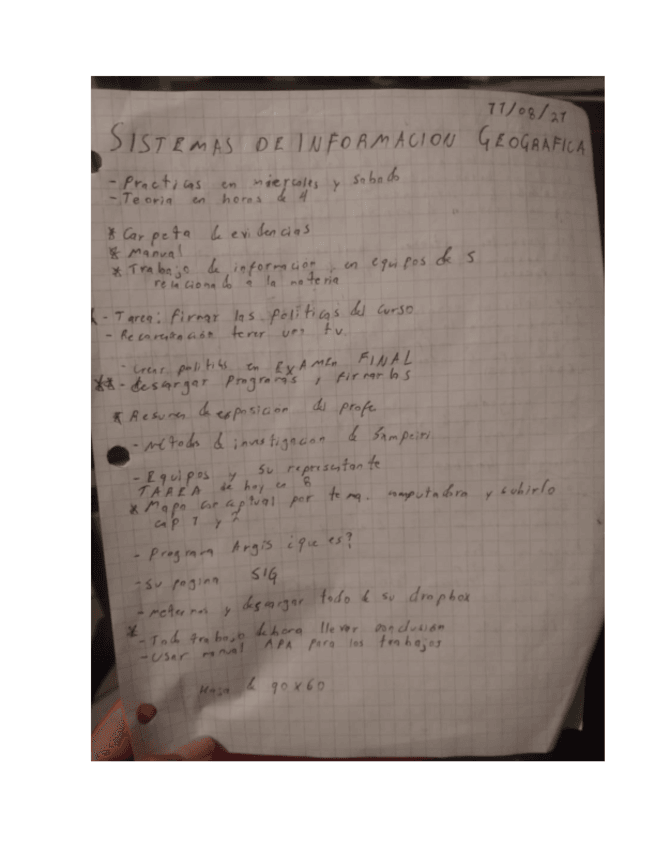 11/08/21
SISTEMAS DE INFORMACION GEOGRAFICA
- Practicas en miercoles y sabado
- Teoria en horas de
* Carpeta de evidencias
* Manual
* Trabajo de informacion, en equipos de 5
relacionado a la materia
- Tarea: firmar las politicas del curso
- tener un tv.
- politicas en EXAMEN FINAL
** - descargar programas y firmarlos
* Resumen de exposicion del profe
- Método de investigacion de Sampieri
- Equipos y su representante
TAREA de hoy en 8
* Mapa conceptual por tema. computadora y subirlo
cap 1 y 2
- Programa Argis ¿que es?
- Su pagina SIG
- meternos y descargar todo de su dropbox
*
- Todo trabajo llevar conclusión
- Usar manual APA para los trabajos
Hoja de 90 x 60